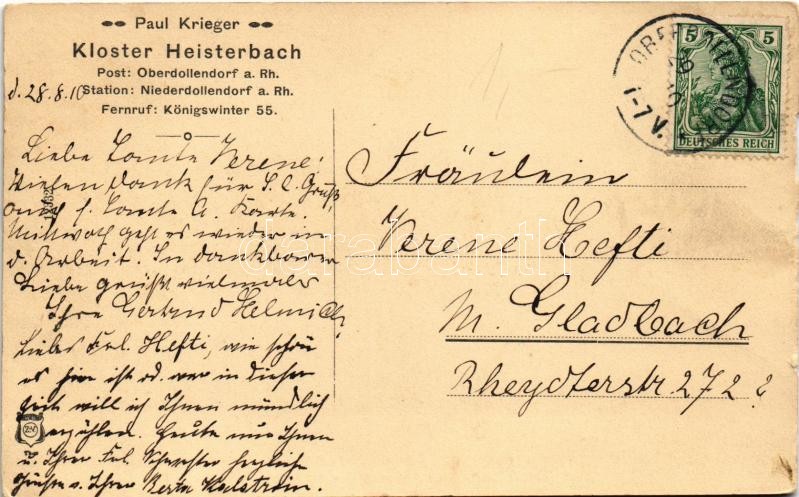 Paul Krieger
Kloster Heisterbach
Post: Oberdollendorf a. Rh.
Station: Niederdollendorf a. Rh.
Fernruf: Königswinter 55.
d. 28.8.10
Liebe Tante Verene!
Vielen Dank für S. l. Gruß
auch f. Tante A. Karte.
Mittwoch geht es wieder in
d. Arbeit. In dankbarer
Liebe grüßt vielmals
Ihre Gertrud
Liebes Frl. Hefti, wie schön
es hier ist od. war in dieser
Zeit will ich Ihnen mündlich
erzählen. Heute nur Ihnen
u. Ihrer Frl. Schwester herzliche
Grüße v. Ihrer Berta
5 5
DEUTSCHES REICH
OBERDOLLENDORF
1-7 V.
Fräulein
Verene Hefti
M. Gladbach
Rheydterstr 272
darabanth